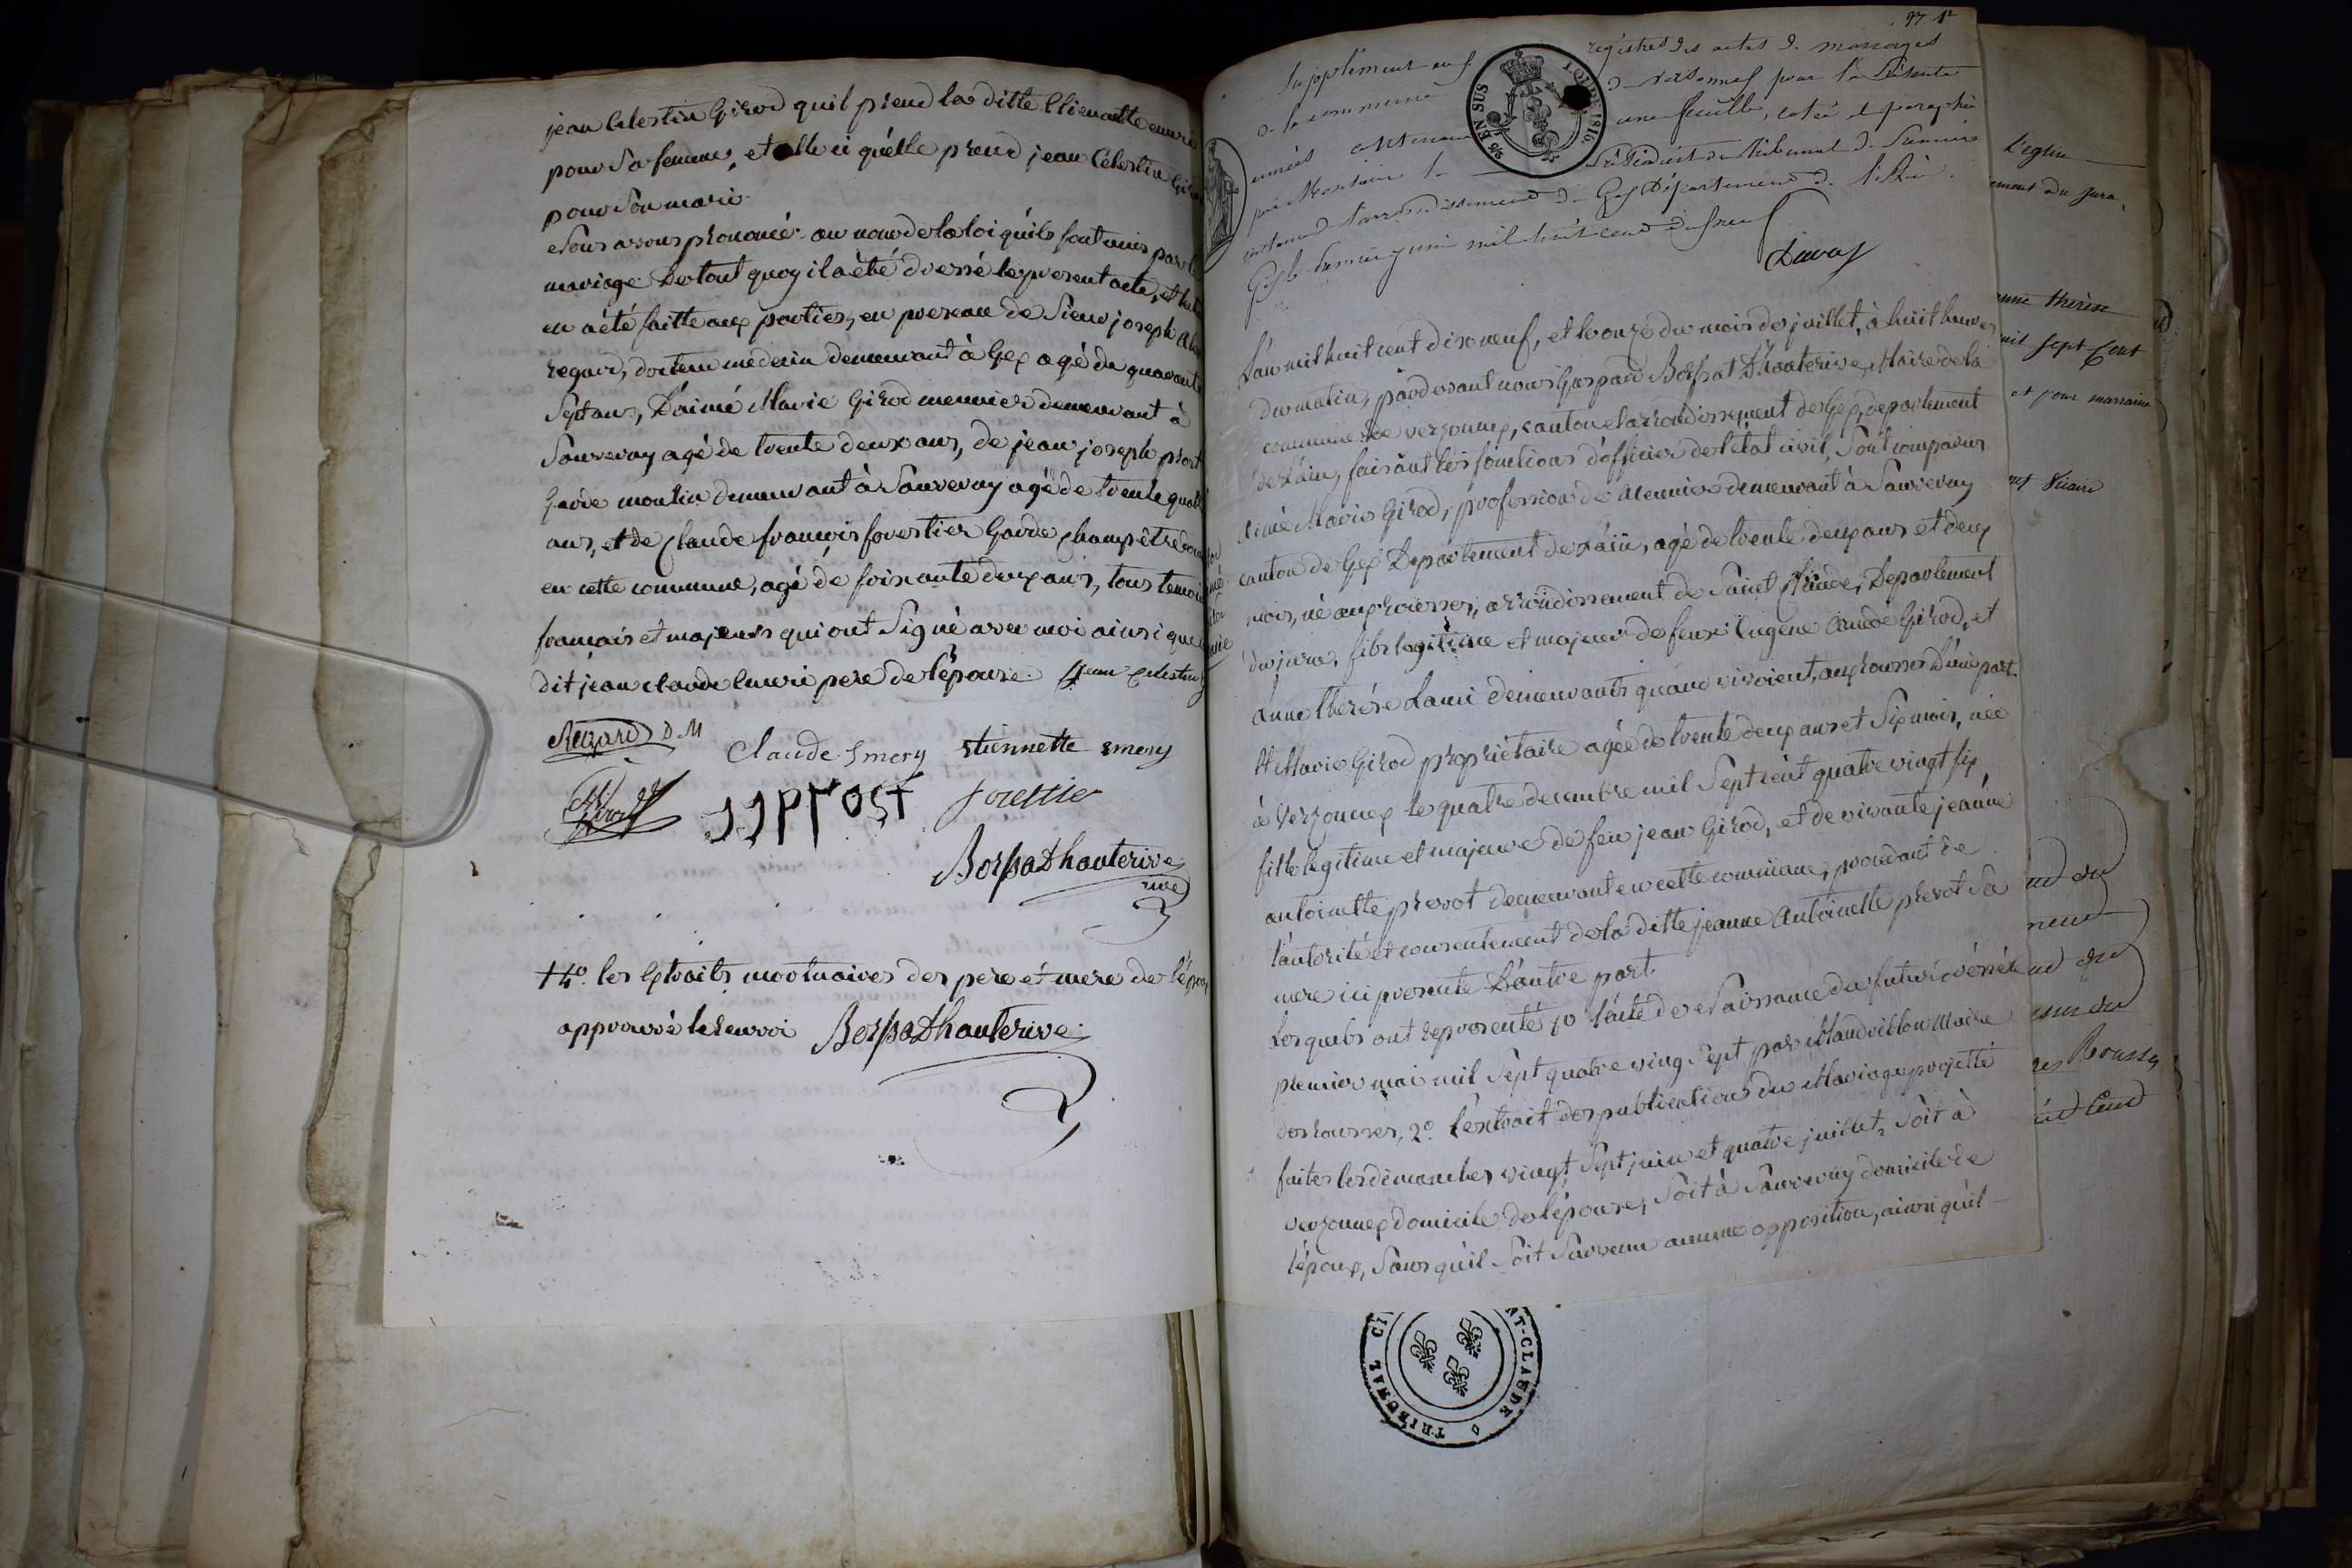 jean Celestin Girod quil prend la ditte Etiennette emeri
pour Sa femme, et elle ci quélle prend jean Célestin Giro
pour Son mari.
Nous avons prononcé au nom de la loi quils sont unis par le
mariage De tout quoy il a été dressé le present acte, et
en a été faitte aux parties, en presence de Sieur joseph
regard, docteur medecin demeurant à Gex agé de quarante
Sept ans, D'aimé Marie Girod meunier demeurant à
Sauverny agé de trente deux ans, de jean joseph prost
Garde moulin demeurant à Sauverny agé de trente quatr
ans, et de Claude françois forestier Garde Champêtre
en cette commune, agé de soixante deux ans, tous temoin
français et majeurs qui ont Signé avec moi ainsi que
dit jean claude Emeri pere de l'épouse. Jean Celestin G
Regard D. M
Claude Emery Etiennette emery
Girod JJPrOST forestier
Borssat Dhauterive
†4º. les Extraits mortuaires des pere et mere de l'épou
approuvé le renvoi Borssat Dhauterive
97 1º
Supplément aux registres des actes de mariages
de la commune de versonnex pour la présente
année contenant une feuille, cotée et paraphée
par Monsieur le Président du tribunal de premiere
instance de l'arrondissement de Gex Département de l'Ain.
Gex le juin mil huit cent dix neuf
EN SUS
LOI DE 1816
L'an mil huit cent dix neuf, et le onze du mois de juillet, à huit heures
du matin, pardevant nous Gaspard Borssat D'hauterive, Maire de la
commune de versonnex, canton et arrondissement de Gex, departement
de l'ain, faisant les fonctions d'officier de l'état civil, Sont comparus
aimé Marie Girod, profession de Meunier demeurant à Sauverny
canton de Gex Departement de l'ain, agé de trente deux ans et deux
mois, né aux rousses, arrondissement de Saint Claude, Departement
du jura, fils legitime et majeur de feux Eugene Claude Girod, et
Anne therése Lami demeurants quand vivoient, aux rousses D'une part.
Et Marie Girod propriétaire agée de trente deux ans et Six mois, née
à Versonnex le quatre decembre mil Sept cent quatre vingt six,
fille legitime et majeure de feu jean Girod, et de vivante jeanne
antoinette prevot demeurante en cette commune, procedant de
l'autorité et consentement de la ditte jeanne Antoinette prevot Sa
mere ici presente D'autre part.
Lesquels ont representé 1º l'acte de Naissance du futur
premier mai mil Sept quatre ving Sept par Mandrillon Maire
des rousses, 2º. l'extrait des publications du Mariage projetté
faites les dimanches vingt Sept juin et quatre juillet, Soit à
versonnex domicile de l'épouse, Soit à Sauverny domicile de
l'époux, Sans qu'il Soit Survenu aucune opposition, ainsi qu'il
l'eglise
ement du jura,
nne thérèse
mil sept cent
et pour marraine
Vicaire
des Rousses
TRIBUNAL CI
AT-CLAUDE